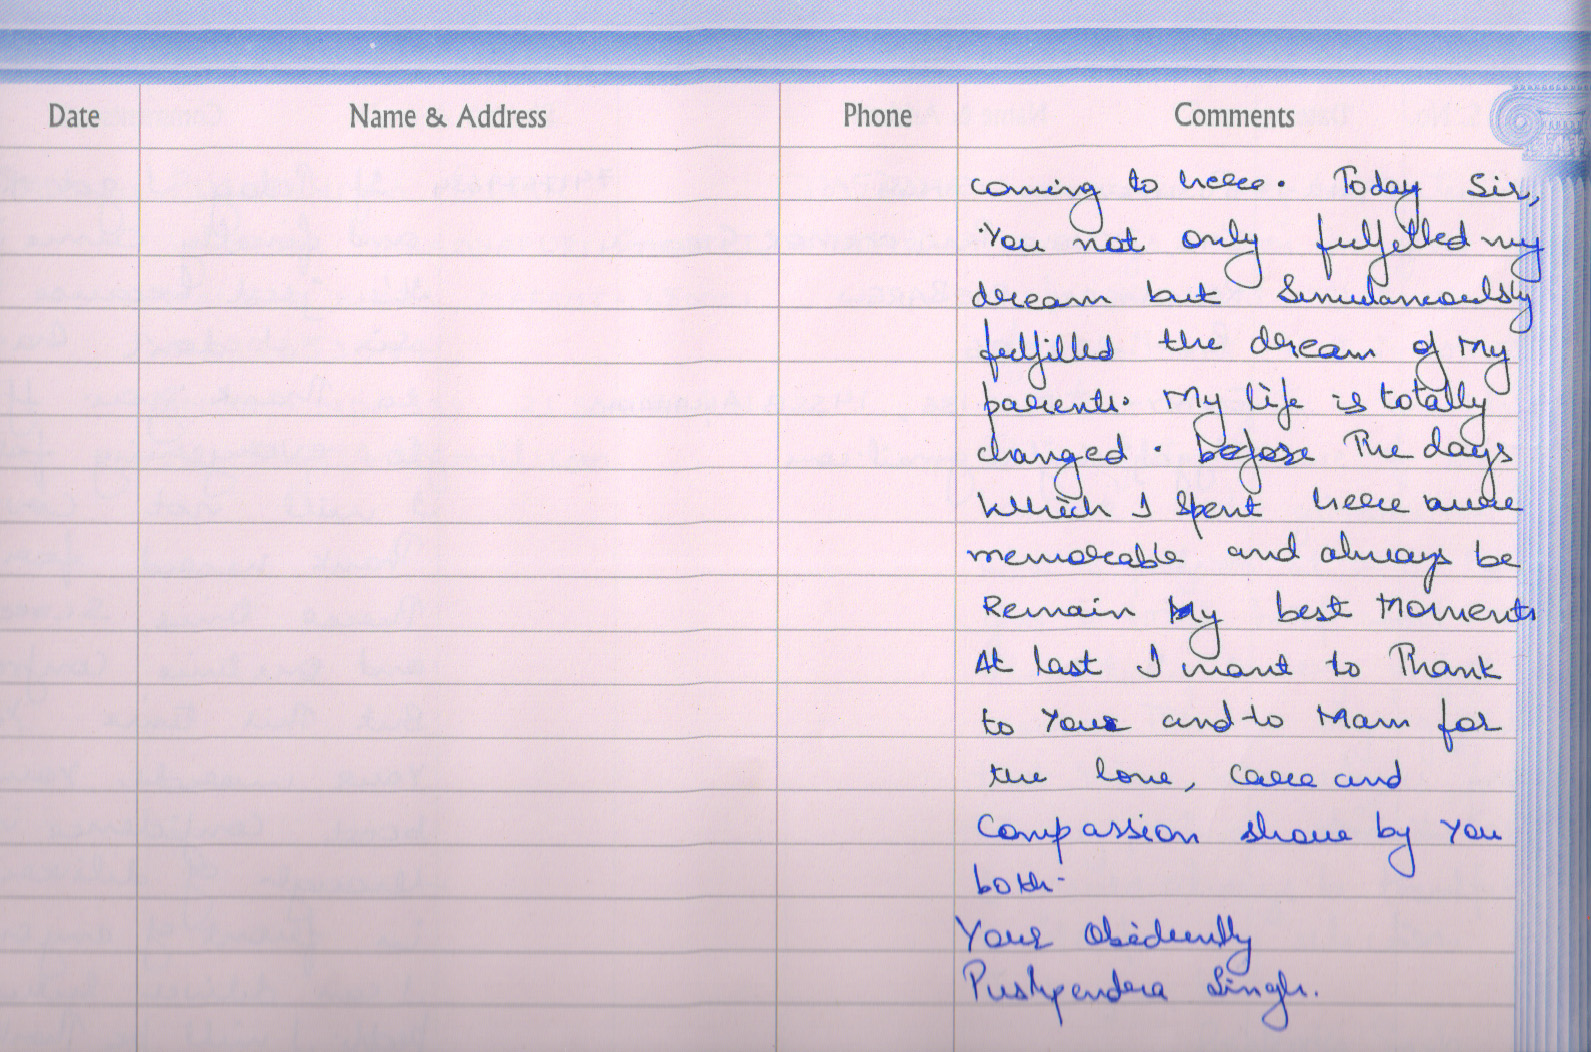 Date Name & Address Phone Comments
coming to here. Today Sir,
You not only fulfelled my
dream but Simulaneously
fulfilled the dream of My
parents. My life is totally
changed. before The days
Which I spent here
memorable and always be
Remain My best Moments
At last I want to Thank
to Your and to Mam for
the love, care and
Compassion by You
both.
Your Obediently
Pushpendera Singh.